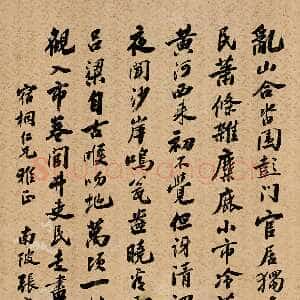 亂山合沓圍彭門官居獨
民蕭條雜麋鹿小市冷
黃河西來初不覺但訝清
夜聞沙岸鳴瓮盎曉看
呂梁自古喉吻地萬頃一
觀入市卷閭井吏民走盡
宿桐仁兄雅正
南陂張